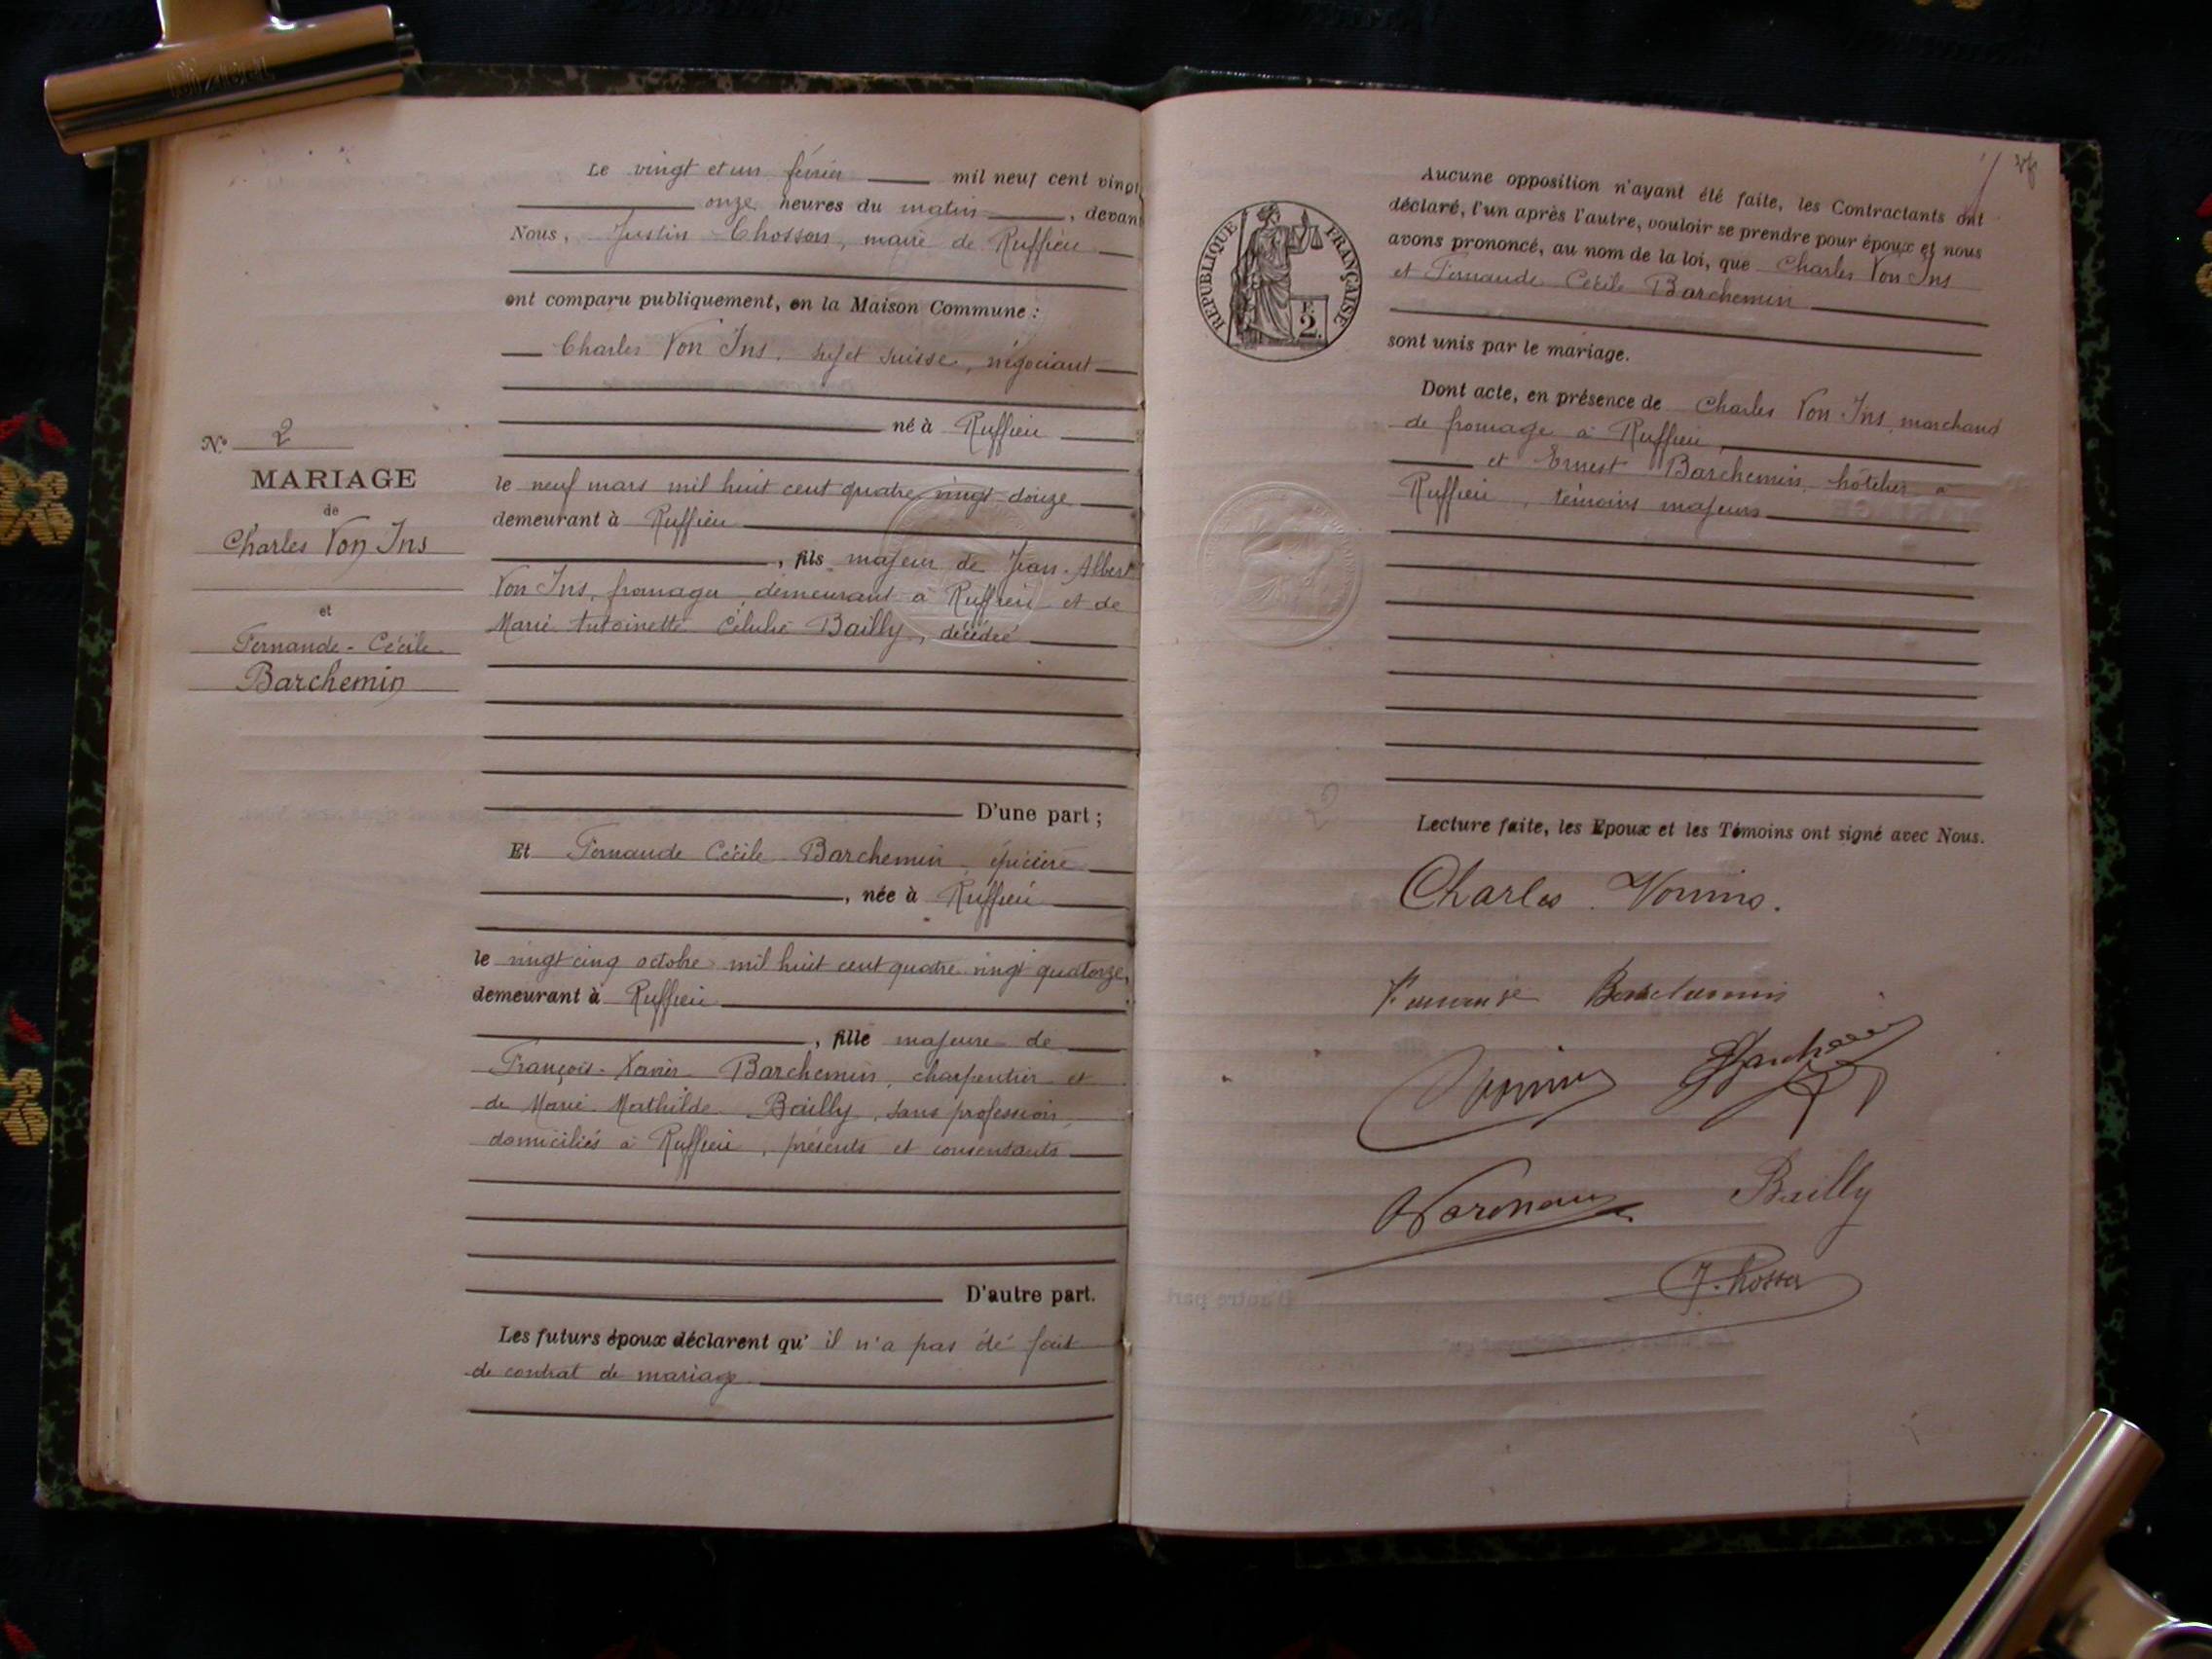 Le vingt et un février mil neuf cent vingt
onze heures du matin, devant
Nous, Justin Chosson, maire de Ruffieu
ont comparu publiquement, en la Maison Commune :
Charles Von Ins, sujet suisse, négociant
né à Ruffieu
N° 2
MARIAGE
de
Charles Von Ins
et
Fernande-Cécile
Barchemin
le neuf mars mil huit cent quatre vingt douze
demeurant à Ruffieu
, fils majeur de Jean-Albert
Von Ins, fromager, demeurant à Ruffieu et de
Marie Antoinette Bailly, décédée
D'une part ;
Et Fernande Cécile Barchemin, épicière
, née à Ruffieu
le vingt cinq octobre mil huit cent quatre vingt quatorze,
demeurant à Ruffieu
, fille majeure de
François-Xavier Barchemin, charpentier et
de Marie Mathilde Bailly, sans profession,
domiciliés à Ruffieu, présents et consentants
D'autre part.
Les futurs époux déclarent qu'il n'a pas été fait
de contrat de mariage
RÉPUBLIQUE FRANÇAISE
F.
2.
Aucune opposition n'ayant été faite, les Contractants ont
déclaré, l'un après l'autre, vouloir se prendre pour époux et nous
avons prononcé, au nom de la loi, que Charles Von Ins
et Fernande Cécile Barchemin
sont unis par le mariage.
Dont acte, en présence de Charles Von Ins, marchand
de fromage à Ruffieu
et Ernest Barchemin, hôtelier à
Ruffieu, témoins majeurs
Lecture faite, les Epoux et les Témoins ont signé avec Nous.
Charles Vonins.
Fernande Barchemin
Vonins
Bailly
J. Chosson